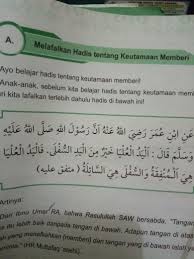 A.
Melafalkan Hadis tentang Keutamaan Memberi
Ayo belajar hadis tentang keutamaan memberi!
Anak-anak, sebelum kita belajar hadis tentang keutamaan mem
ri kita lafalkan terlebih dahulu hadis di bawah ini!
عَنِ ابْنِ عُمَرَ رَضِيَ اللهُ عَنْهُ أَنَّ رَسُوْلَ اللهِ صَلَّى اللهُ عَلَيْهِ
وَسَلَّمَ قَالَ : اَلْيَدُ الْعُلْيَا خَيْرٌ مِنَ الْيَدِ السُّفْلَى. فَالْيَدُ الْعُلْيَا
هِيَ الْمُنْفِقَةُ وَالْيَدُ السُّفْلَى هِيَ السَّائِلَةُ (متفق عليه)
Artinya:
Dari Ibnu Umar RA, bahwa Rasulullah SAW bersabda, "Tangan
itu lebih baik daripada tangan di bawah. Adapun tangan di atas
yang menafkahkan (memberi) dan tangan yang di bawah ialah
(HR. Muttafaq